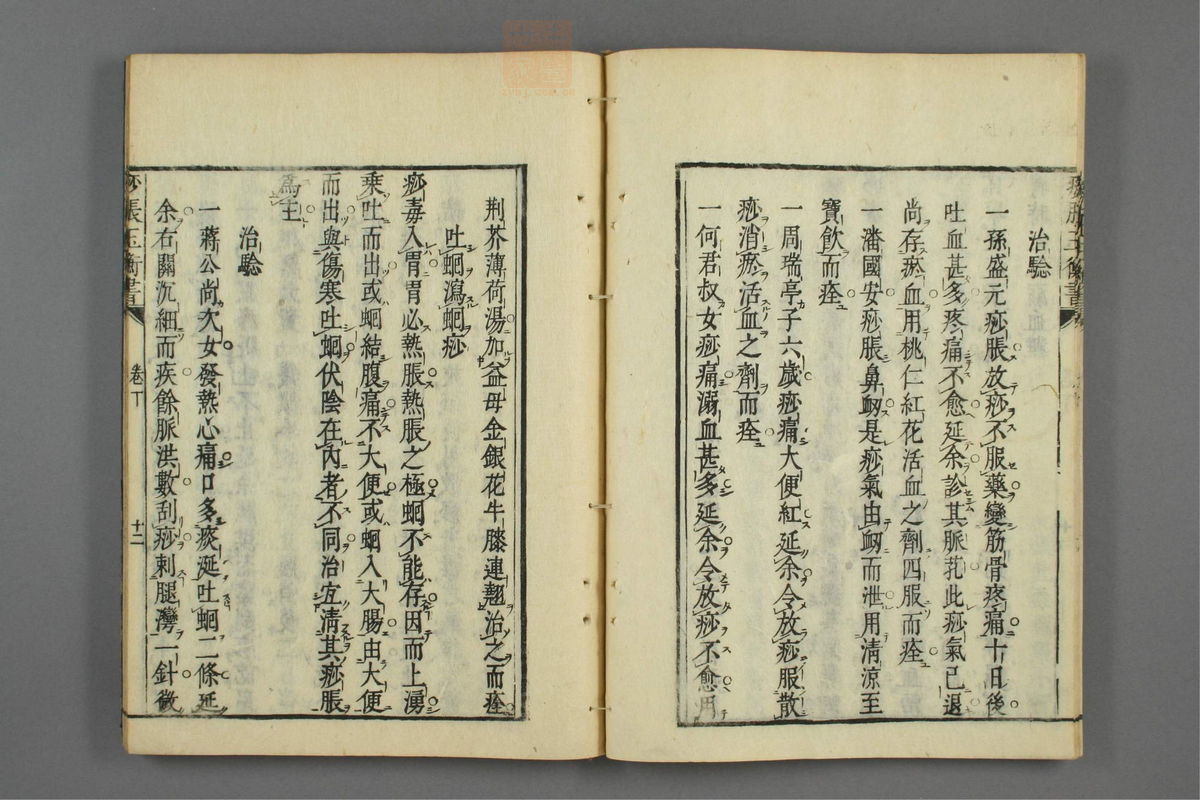 治驗
一孫盛元痧脹放痧不服藥變筋骨疼痛十日後
吐血甚多疼痛不愈延余診其脈芤此痧氣已退
尚存瘀血用桃仁紅花活血之劑四服而痊
一潘國安痧脹鼻衂是痧氣由衂而泄用清涼至
寶飲而痊
一周瑞亭子六歲痧痛大便紅延余令放痧服散
痧消瘀活血之劑而痊
一何君叔女痧痛溺血甚多延余令放痧不愈用
荆芥薄荷湯加益母金銀花牛膝連翹治之而痊
吐蛔瀉蛔痧
痧毒入胃胃必熱脹熱脹之極蛔不能存因而上湧
乘吐而出或蛔結腹痛不大便或蛔入大腸由大便
而出與傷寒吐蛔伏陰在內者不同治宜清其痧脹
爲主
治驗
一蔣公尚次女發熱心痛口多痰涎吐蛔二條延
余右關沉細而疾餘脈洪數刮痧刺腿灣一針微
痧脹玉衡書
卷下
十二